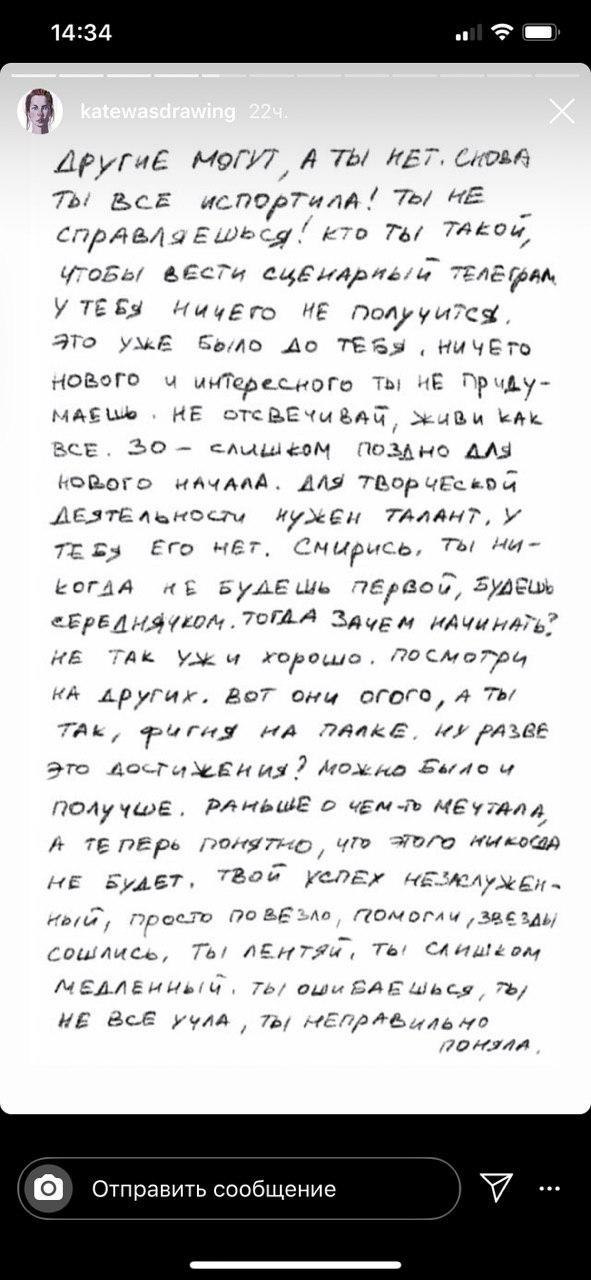 14:34
katewasdrawing 22ч.
ДРУГИЕ МОГУТ, А ТЫ НЕТ. СНОВА
ТЫ ВСЕ ИСПОРТИЛА! ТЫ НЕ
СПРАВЛЯЕШЬСЯ! КТО ТЫ ТАКОЙ,
ЧТОБЫ ВЕСТИ СЦЕНАРНЫЙ ТЕЛЕГРАМ.
У ТЕБЯ НИЧЕГО НЕ ПОЛУЧИТСЯ.
ЭТО УЖЕ БЫЛО ДО ТЕБЯ, НИЧЕГО
НОВОГО И ИНТЕРЕСНОГО ТЫ НЕ ПРИДУ-
МАЕШЬ. НЕ ОТСВЕЧИВАЙ, ЖИВИ КАК
ВСЕ. 30 - СЛИШКОМ ПОЗДНО ДЛЯ
НОВОГО НАЧАЛА. ДЛЯ ТВОРЧЕСКОЙ
ДЕЯТЕЛЬНОСТИ НУЖЕН ТАЛАНТ, У
ТЕБЯ ЕГО НЕТ. СМИРИСЬ, ТЫ НИ-
КОГДА НЕ БУДЕШЬ ПЕРВОЙ, БУДЕШЬ
СЕРЕДНЯЧКОМ. ТОГДА ЗАЧЕМ НАЧИНАТЬ?
НЕ ТАК УЖ И ХОРОШО. ПОСМОТРИ
НА ДРУГИХ. ВОТ ОНИ ОГОГО, А ТЫ
ТАК, ФИГНЯ НА ПАЛКЕ. НУ РАЗВЕ
ЭТО ДОСТИЖЕНИЯ? МОЖНО БЫЛО И
ПОЛУЧШЕ. РАНЬШЕ О ЧЕМ-ТО МЕЧТАЛА,
А ТЕПЕРЬ ПОНЯТНО, ЧТО ЭТОГО НИКОГДА
НЕ БУДЕТ. ТВОЙ УСПЕХ НЕЗАСЛУЖЕН-
НЫЙ, ПРОСТО ПОВЕЗЛО, ПОМОГЛИ, ЗВЕЗДЫ
СОШЛИСЬ, ТЫ ЛЕНТЯЙ, ТЫ СЛИШКОМ
МЕДЛЕННЫЙ. ТЫ ОШИБАЕШЬСЯ, ТЫ
НЕ ВСЕ УЧЛА, ТЫ НЕПРАВИЛЬНО
ПОНЯЛА.
Отправить сообщение